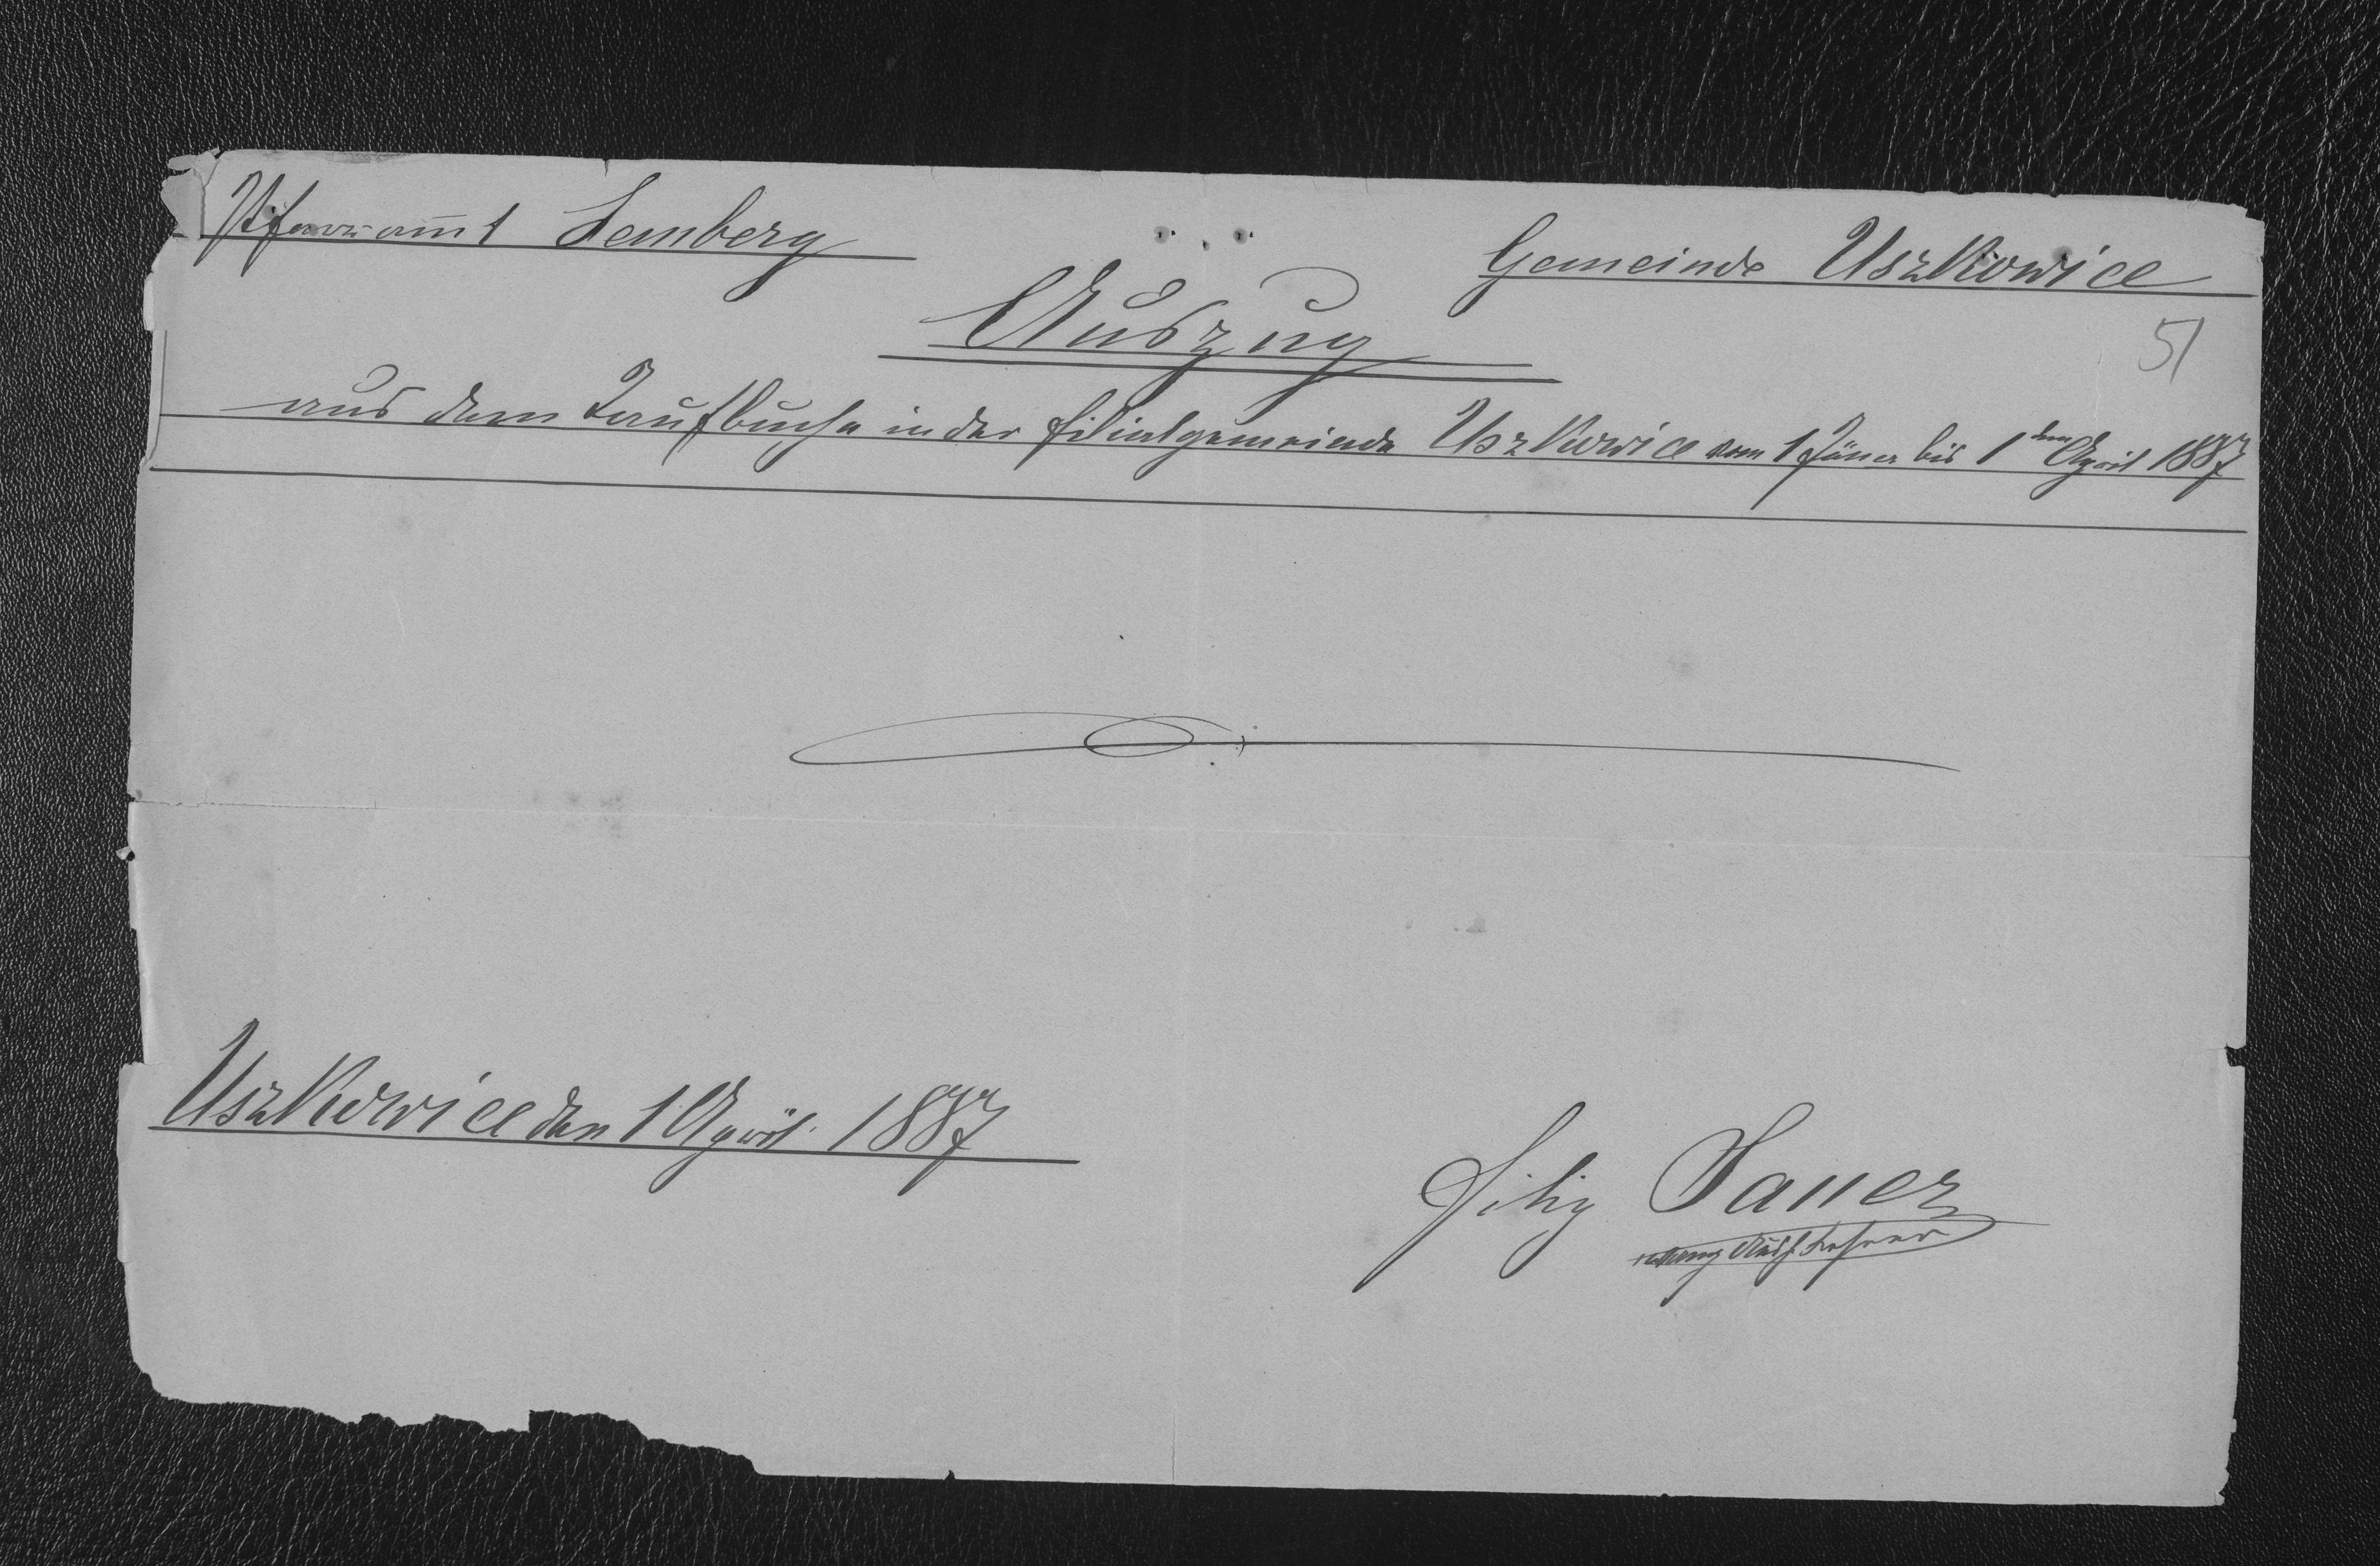 Pfarramt Lemberg
Gemeinde Uszkowice
Auszug
51
aus dem Taufbuche in der Filialgemeinde Uszkowice vom 1 Jäner bis 1 ten April 1887
Uszkowice den 1 April 1887
Filip Sauer
evang Lehrer